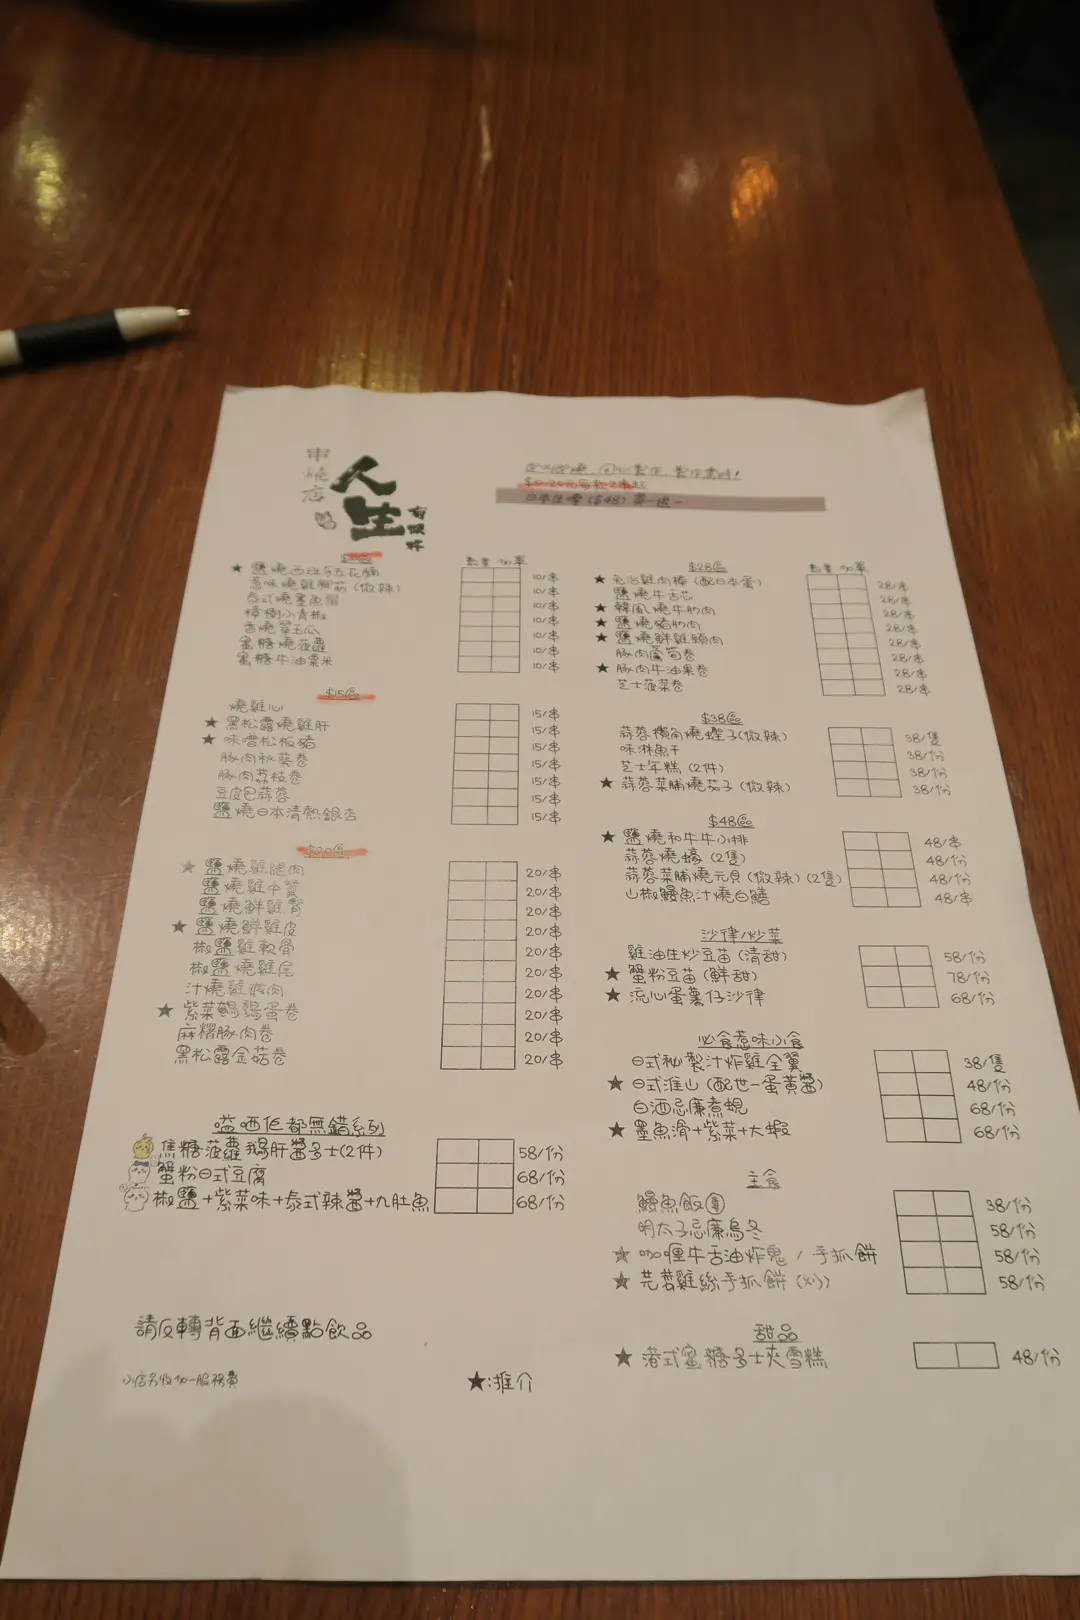 串燒店
人生
有限杯
即叫即燒，用心製作，製作需時！
$10-20元每款2串起
日本生啤 ($48) 買一送一
數量 加單
★ 鹽燒西班牙五花腩 10/串
惹味燒雞腳筋 (微辣) 10/串
泰式燒墨魚鬚 10/串
樟樹小青椒 10/串
香燒翠玉瓜 10/串
蜜糖燒菠蘿 10/串
蜜糖牛油粟米 10/串
$15區
燒雞心 15/串
★ 黑松露燒雞肝 15/串
★ 味噌松板豬 15/串
豚肉秋葵卷 15/串
豚肉荔枝卷 15/串
豆皮包蒜蓉 15/串
鹽燒日本清熱銀杏 15/串
$20區
★ 鹽燒雞腿肉 20/串
鹽燒雞中翼 20/串
鹽燒鮮雞腎 20/串
★ 鹽燒鮮雞皮 20/串
椒鹽雞軟骨 20/串
椒鹽燒雞尾 20/串
汁燒雞 20/串
★ 紫菜鵪鶉蛋卷 20/串
麻糬豚肉卷 20/串
黑松露金菇卷 20/串
嗌哂佢都無錯系列
焦糖菠蘿鵝肝醬多士(2件) 58/份
蟹粉日式豆腐 68/份
椒鹽+紫菜味+泰式辣醬+九肚魚 68/份
請反轉背面繼續點飲品
小店另收加一服務費
★:推介
$28區
數量 加單
★ 免治雞肉棒 (配日本蛋) 28/串
鹽燒牛舌芯 28/串
★ 韓風燒牛肋肉 28/串
★ 鹽燒豬肋肉 28/串
★ 鹽燒鮮雞頸肉 28/串
豚肉蘆筍卷 28/串
★ 豚肉牛油果卷 28/串
芝士菠菜卷 28/串
$38區
蒜蓉欖角燒蟶子(微辣) 38/隻
味淋魚干 38/份
芝士年糕 (2件) 38/份
★ 蒜蓉菜脯燒茄子 (微辣) 38/份
$48區
★ 鹽燒和牛牛小排 48/串
蒜蓉燒蠔 (2隻) 48/份
蒜蓉菜脯燒元貝 (微辣) (2隻) 48/份
山椒鰻魚汁燒白鱔 48/串
沙律/炒菜
雞油生炒豆苗 (清甜) 58/份
★ 蟹粉豆苗 (鮮甜) 78/份
★ 流心蛋薯仔沙律 68/份
必食惹味小食
日式秘製汁炸雞全翼 38/隻
★ 日式淮山 (配世一蛋黃醬) 48/份
白酒忌廉煮蜆 68/份
★ 墨魚滑+紫菜+大蝦 68/份
主食
鰻魚飯團 38/份
明太子忌廉烏冬 58/份
★ 咖喱牛舌油炸鬼 / 手抓餅 58/份
★ 芫荽雞絲手抓餅 (凍) 58/份
甜品
★ 港式蜜糖多士夾雪糕 48/份